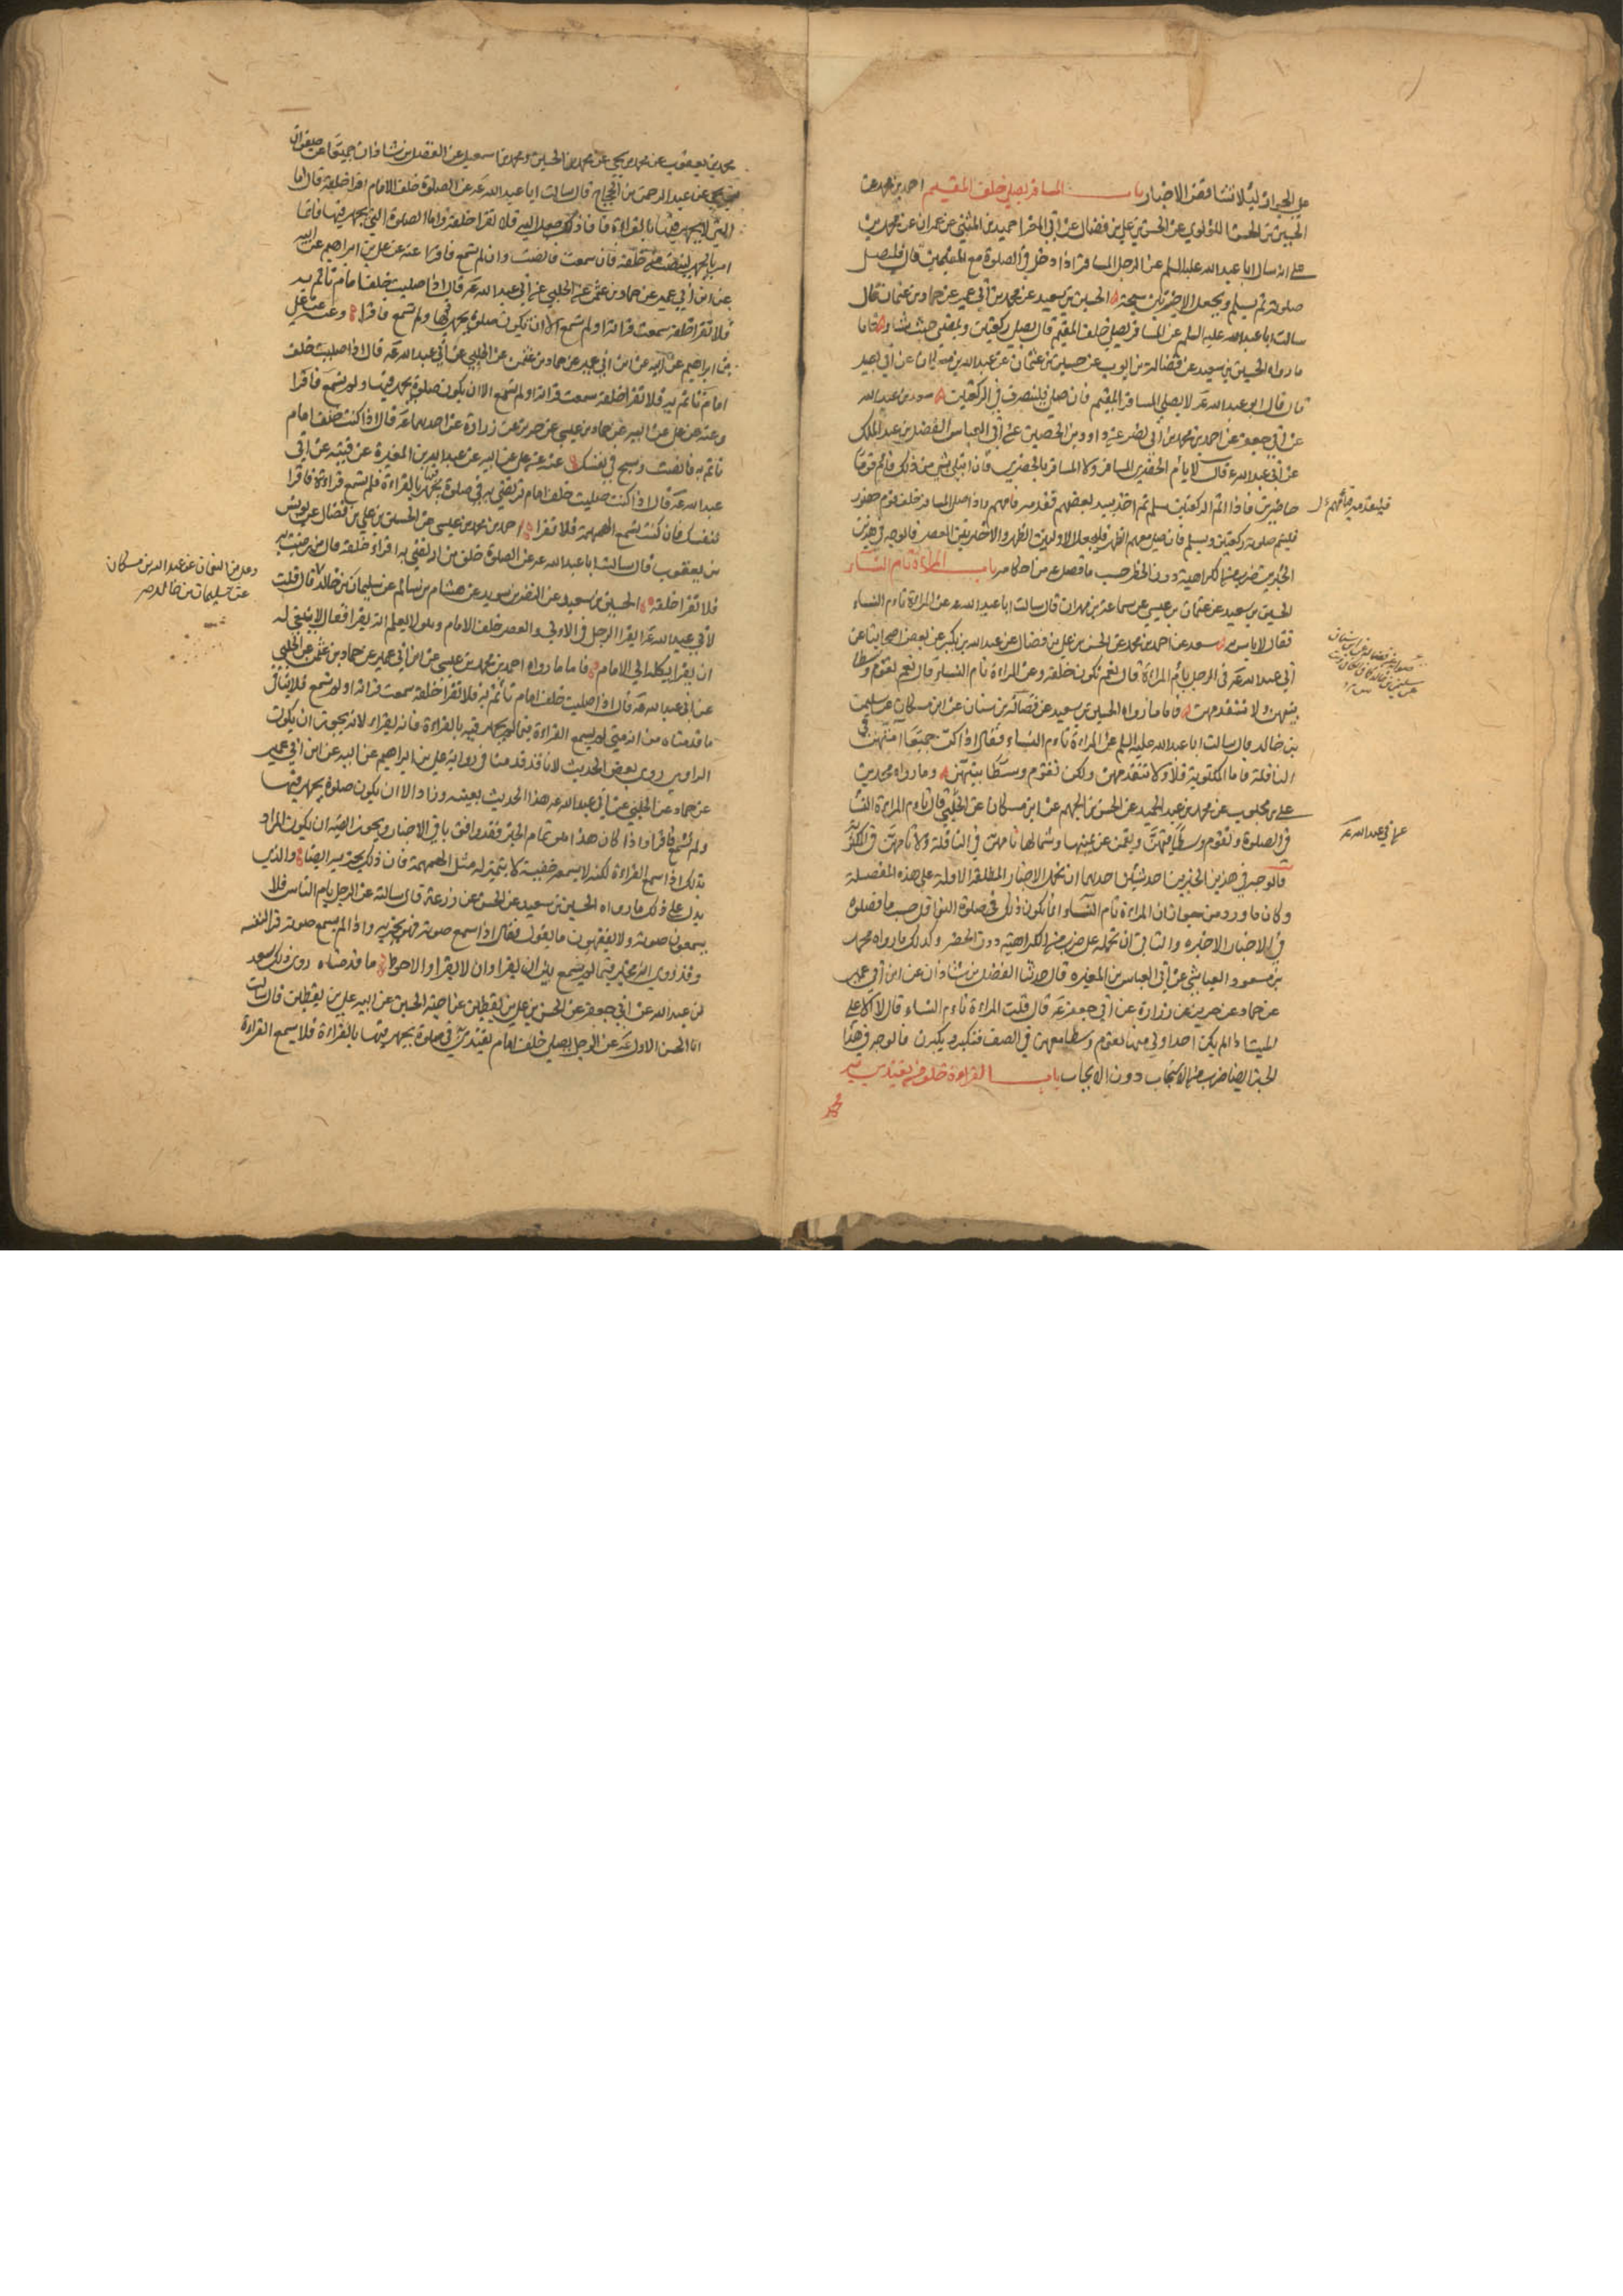 على الجواز لئلا تتناقض الاخبار باب المسافر يصلي خلف المقيم احمد بن محمد عن
الحسين عن الحسن اللؤلوي عن الحسن بن علي بن فضال عن ابي المغرا حميد بن المثنى عن عمران عن محمد بن
علي انه سال ابا عبد الله عليه السلم عن الرجل المسافر اذا دخل في الصلوة مع المقيمين قال فليصل
صلوته ثم يسلم ويجعل الاخيرتين سبحة الحسين بن سعيد عن محمد بن ابي عمير عن حماد بن عثمان قال
سالت ابا عبد الله عليه السلم عن المسافر يصلي خلف المقيم قال يصلي ركعتين ويمضي حيث شاء فاما
ما رواه الحسين بن سعيد عن فضالة بن ايوب عن حسين بن عثمان عن عبد الله بن مسكان عن ابي بصير
قال قال ابو عبد الله ع لا يصلي المسافر مع المقيم فان صلى فلينصرف في الركعتين سعد بن عبد الله
عن ابي جعفر عن احمد بن محمد بن ابي نصر عن داود بن الحصين عن ابي العباس الفضل بن عبد الملك
عن ابي عبد الله ع قال لا يام الحضري المسافر ولا المسافر الحضري فان ابتلى بشي من ذلك فام قوما
حاضرين فاذا اتم الركعتين سلم ثم اخذ بيد بعضهم فقدمه فامهم واذا صلى المسافر خلف قوم حضور
فليتم صلوته ركعتين ويسلم فان صلى معهم الظهر فليجعل الاولتين الظهر والاخيرتين العصر فالوجه في هذين
الخبرين ضرب من الكراهية دون الحظر حسب ما فصل من احكامه باب المراة تام النساء
الحسين بن سعيد عن عثمان بن عيسى عن سماعة بن مهران قال سالت ابا عبد الله ع عن المراة تاوم النساء
فقال لا باس به سعد عن احمد بن محمد عن الحسن بن علي بن فضال عن عبد الله بن بكير عن بعض اصحابنا عن
ابي عبد الله ع في الرجل يام المراة قال نعم تكون خلفه وعن المراة تام النساء قال نعم تقوم وسطا
بينهن ولا تتقدمهن فاما ما رواه الحسين بن سعيد عن فضالة بن سنان عن ابن مسكان عن سليمن
بن خالد قال سالت ابا عبد الله عليه السلم عن المراة تاوم النساء فقال اذا كن جميعا امتهن في
النافلة فاما المكتوبة فلا ولا تتقدمهن ولكن تقوم وسطا بينهن وما رواه محمد بن
علي بن محبوب عن محمد بن عبد الحميد عن الحسن بن الجهم عن ابن مسكان عن الحلبي قال تاوم المراة النساء
في الصلوة وتقوم وسطا فيهن ويقمن عن يمينها وشمالها تامهن في النافلة ولا تامهن في المكتوبة
فالوجه في هذين الخبرين احد شيئين احدهما ان نحمل الاخبار المطلقة الاولة على هذه المفصلة
وكان ما ورد من جواز ان المراة تام النساء انما يكون ذلك في صلوة النوافل حسب ما فصلوه
في الاخبار الاخيرة والثاني ان نحمله على ضرب من الكراهية دون الحظر وكذلك ما رواه محمد
بن مسعود العياشي عن ابي العباس بن المغيره قال حدثنا الفضل بن شاذان عن ابن ابي عمير
عن حماد عن حريز عن زرارة عن ابي جعفر ع قال قلت المراة تاوم النساء قال لا الا على
الميت اذا لم يكن احد اولى منها تقوم وسطا معهن في الصف فتكبر ويكبرن فالوجه في هذا
الخبر ايضا ضرب من الاستحباب دون الايجاب باب القراءة خلف من يقتدى به
فليقدمه فامهم
عن ابي عبد الله ع
محمد بن يعقوب عن محمد بن يحيى عن محمد بن الحسين ومحمد بن اسمعيل عن الفضل بن شاذان جميعا عن صفوان
بن يحيى عن عبد الرحمن بن الحجاج قال سالت ابا عبد الله ع عن الصلوة خلف الامام اقرا خلفه قال اما
التي لا يجهر فيها بالقراءة فان ذلك جعل اليه فلا تقرا خلفه واما الصلوة التي يجهر فيها فانما
امر بالجهر لينصت من خلفه فان سمعت فانصت وان لم تسمع فاقرا عنه عن علي بن ابراهيم عن ابيه
عن ابن ابي عمير عن حماد بن عثمن عن الحلبي عن ابي عبد الله ع قال اذا صليت خلف امام تاتم به
فلا تقرا خلفه سمعت قراته او لم تسمع الا ان تكون صلوة يجهر فيها ولم تسمع فاقرا وعنه عن علي
بن ابراهيم عن ابيه عن ابن ابي عمير عن حماد بن عثمن عن الحلبي عن ابي عبد الله ع قال اذا صليت خلف
امام تاتم به فلا تقرا خلفه سمعت قراته او لم تسمع الا ان يكون صلوة يجهر فيها ولم تسمع فاقرا
وعنه عن علي عن ابيه عن حماد بن عيسى عن حريز عن زرارة عن احدهما ع قال اذا كنت خلف امام
تاتم به فانصت وسبح في نفسك عنه عن علي عن ابيه عن عبد الله بن المغيرة عن قتيبه عن ابي
عبد الله ع قال اذا كنت صليت خلف امام ترتضي به في صلوة يجهر فيها بالقراءة فلم تسمع قراءته فاقرا
لنفسك فان كنت تسمع الهمهمة فلا تقرا احمد بن محمد بن عيسى عن الحسن بن علي بن فضال عن يونس
بن يعقوب قال سالت ابا عبد الله ع عن الصلوة خلف من ارتضي به اقرا خلفه قال من رضيت به
فلا تقرا خلفه الحسين بن سعيد عن النضر بن سويد عن هشام بن سالم عن سليمان بن خالد قال قلت
لابي عبد الله ع ايقرا الرجل في الاولى والعصر خلف الامام وهو لا يعلم انه يقرا فقال لا ينبغي له
ان يقرا يكله الى الامام فاما ما رواه احمد بن محمد بن عيسى عن ابن ابي عمير عن حماد بن عثمن عن الحلبي
عن ابي عبد الله ع قال اذا صليت خلف امام تاتم به فلا تقرا خلفه سمعت قراته او لم تسمع فلا ينافي
ما قدمناه من انه متى لم يسمع القراءة فيما يجهر فيه بالقراءة فانه يقراء لانه يجوز ان يكون
الراوي روى بعض الحديث لانا قد قدمنا في رواية علي بن ابراهيم عن ابيه عن ابن ابي عمير
عن حماد عن الحلبي عن ابي عبد الله ع هذا الحديث بعينه وزاد الا ان يكون صلوة يجهر فيها
ولم تسمع فاقرا واذا كان هذا من تمام الخبر فقد وافق باقي الاخبار ويجوز ايضا ان يكون المراد
بذلك اذا سمع القراءة لكنه لا يسمعه خفية لا يتميز له مثل الهمهمة فان ذلك يجزيه ايضا والذي
يدل على ذلك ما رواه الحسين بن سعيد عن الحسن عن زرعة قال سالته عن الرجل يام الناس فلا
يسمعون صوته ولا يفقهون ما يقول فقال اذا سمع صوته فهو يجزيه واذا لم يسمع صوته قرا لنفسه
وقد روي انه مخير فيما لم يسمع بين ان يقرا وان لا يقرا والاحوط ما قدمناه روى ذلك سعد
بن عبد الله عن ابي جعفر عن الحسن بن علي بن يقطين عن اخيه الحسين عن ابيه علي بن يقطين قال سالت
ابا الحسن الاول ع عن الرجل يصلي خلف امام يقتدى به في صلوة يجهر فيها بالقراءة فلا يسمع القراءة
وعلي بن النعمان عن عبد الله بن مسكان
عن سليمان بن خالد